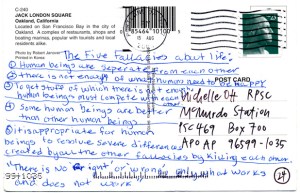 C-240
JACK LONDON SQUARE
Oakland, California
Located on San Francisco Bay in the city of
Oakland. A complex of restaurants, shops and
boating marinas, popular with tourists and local
residents alike.
Photo by Robert
85464 10100
POST CARD
The Five fallacies about life:
① Human beings are seperate from each other
② there is not enough of what human need to be happy
③ To get stuff of which there is not enough
human beings must compete with each other
④ Some human beings are better
than other human beings
⑤ it is appropriate for human
beings to resolve severe differences
created by all the other fallacies by killing each other.
There is no right or wrong only what works
and does not work
Michelle Ott RPSC
McMurdo Station
PSC 469 Box 700
APO AP 96599-1035
24